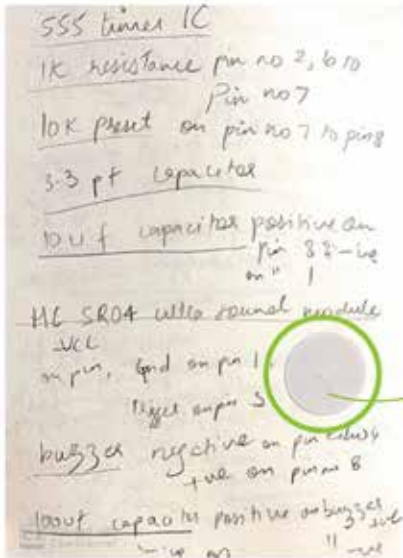 555 timer IC
1K resistance pin no 2, 6 to
Pin no 7
10K preset on pin no 7 to pin 8
3.3 pf capacitor
10 uf capacitor positive on
pin 8 & -ive
on " 1
HC SR04 ultra sound module
VCC
on pin, Gnd on pin 1,
on pin 3
buzzer negative on pin
+ve on pin no 8
100uf capacitor positive on buzzer +ve
-ive on " -ve